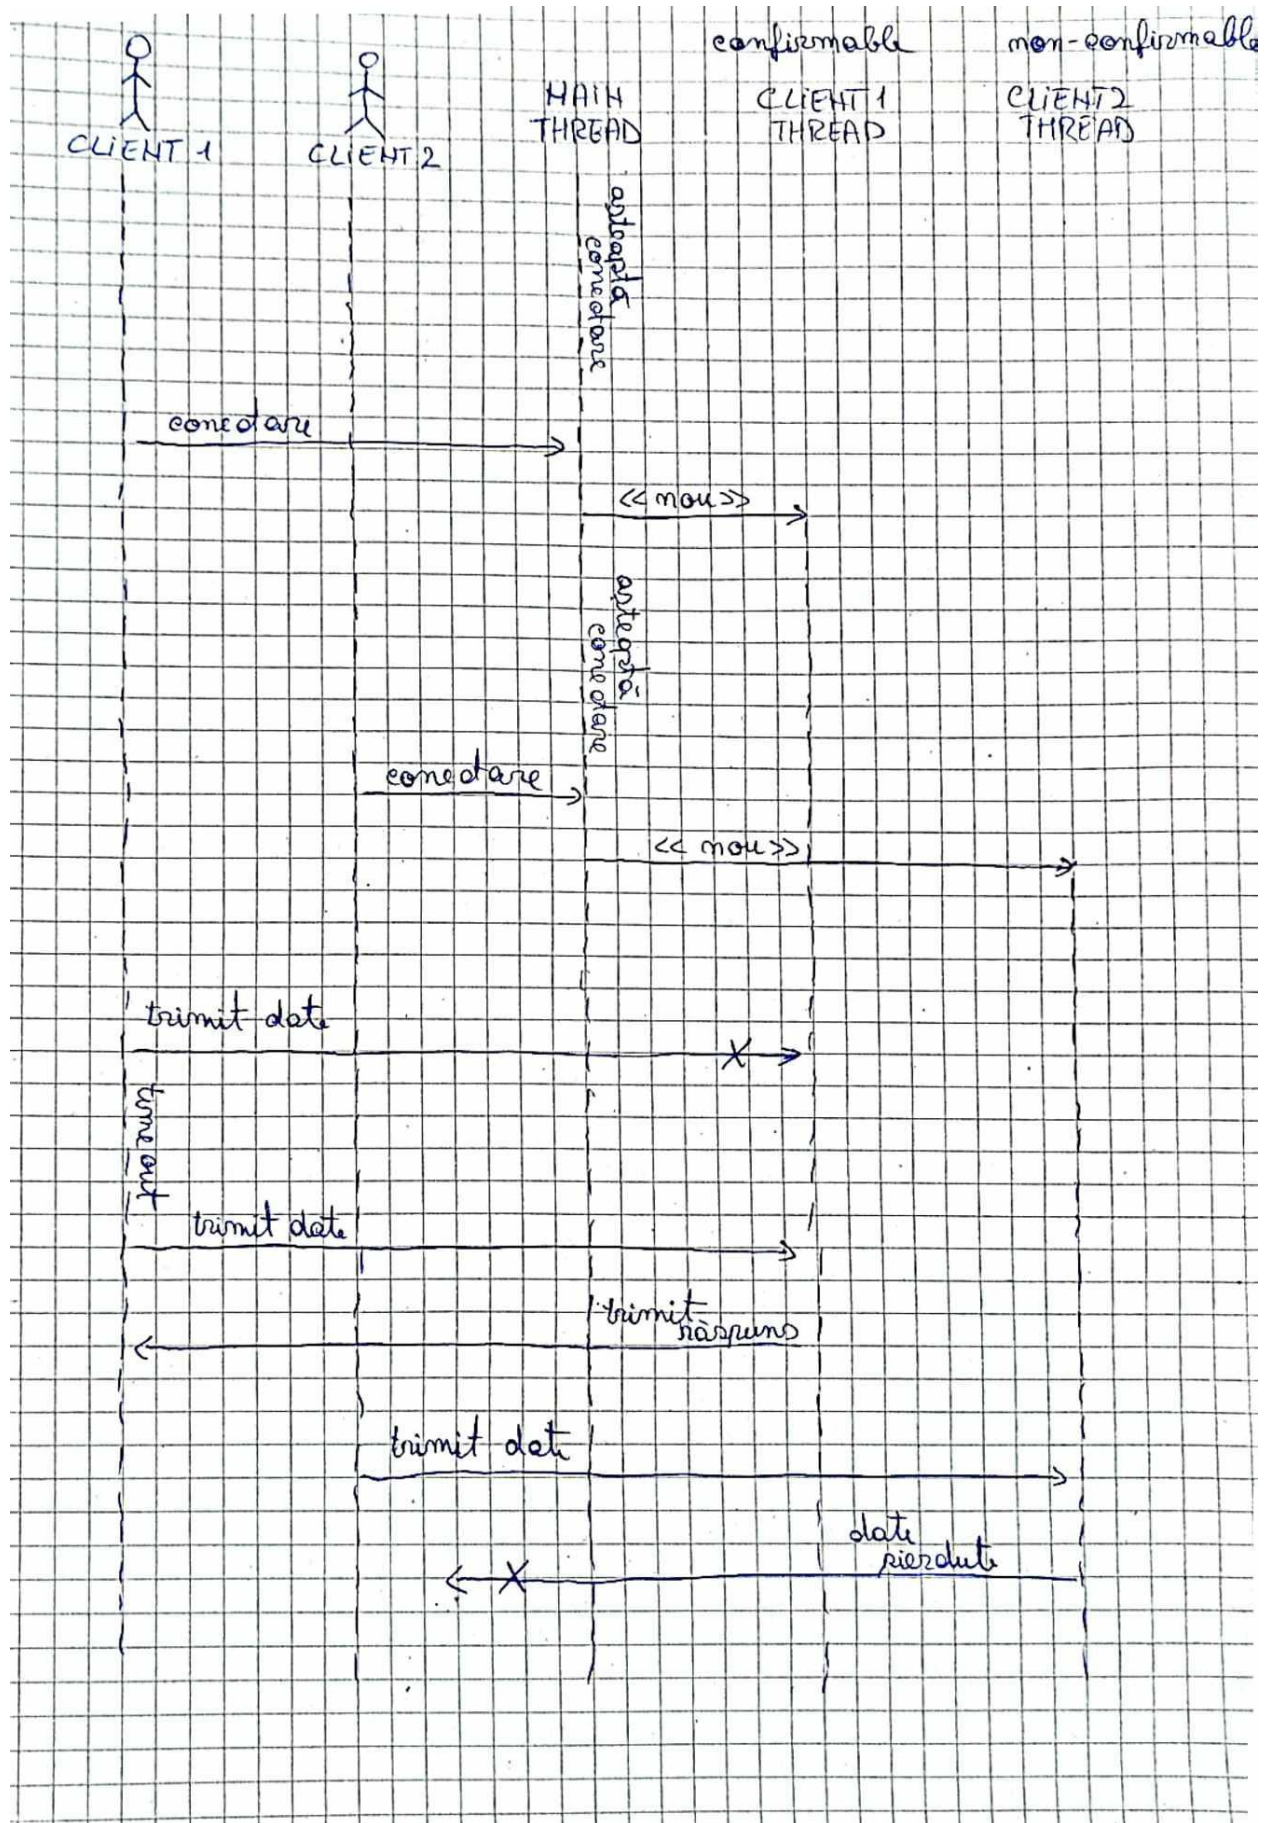 confirmable
non-confirmable
MAIN
THREAD
CLIENT 1
THREAD
CLIENT 2
THREAD
CLIENT 1
CLIENT 2
așteaptă
conectare
conectare
<< nou >>
așteaptă
conectare
conectare
<< nou >>
trimit date
timeout
trimit date
trimit
răspuns
trimit date
date
pierdute